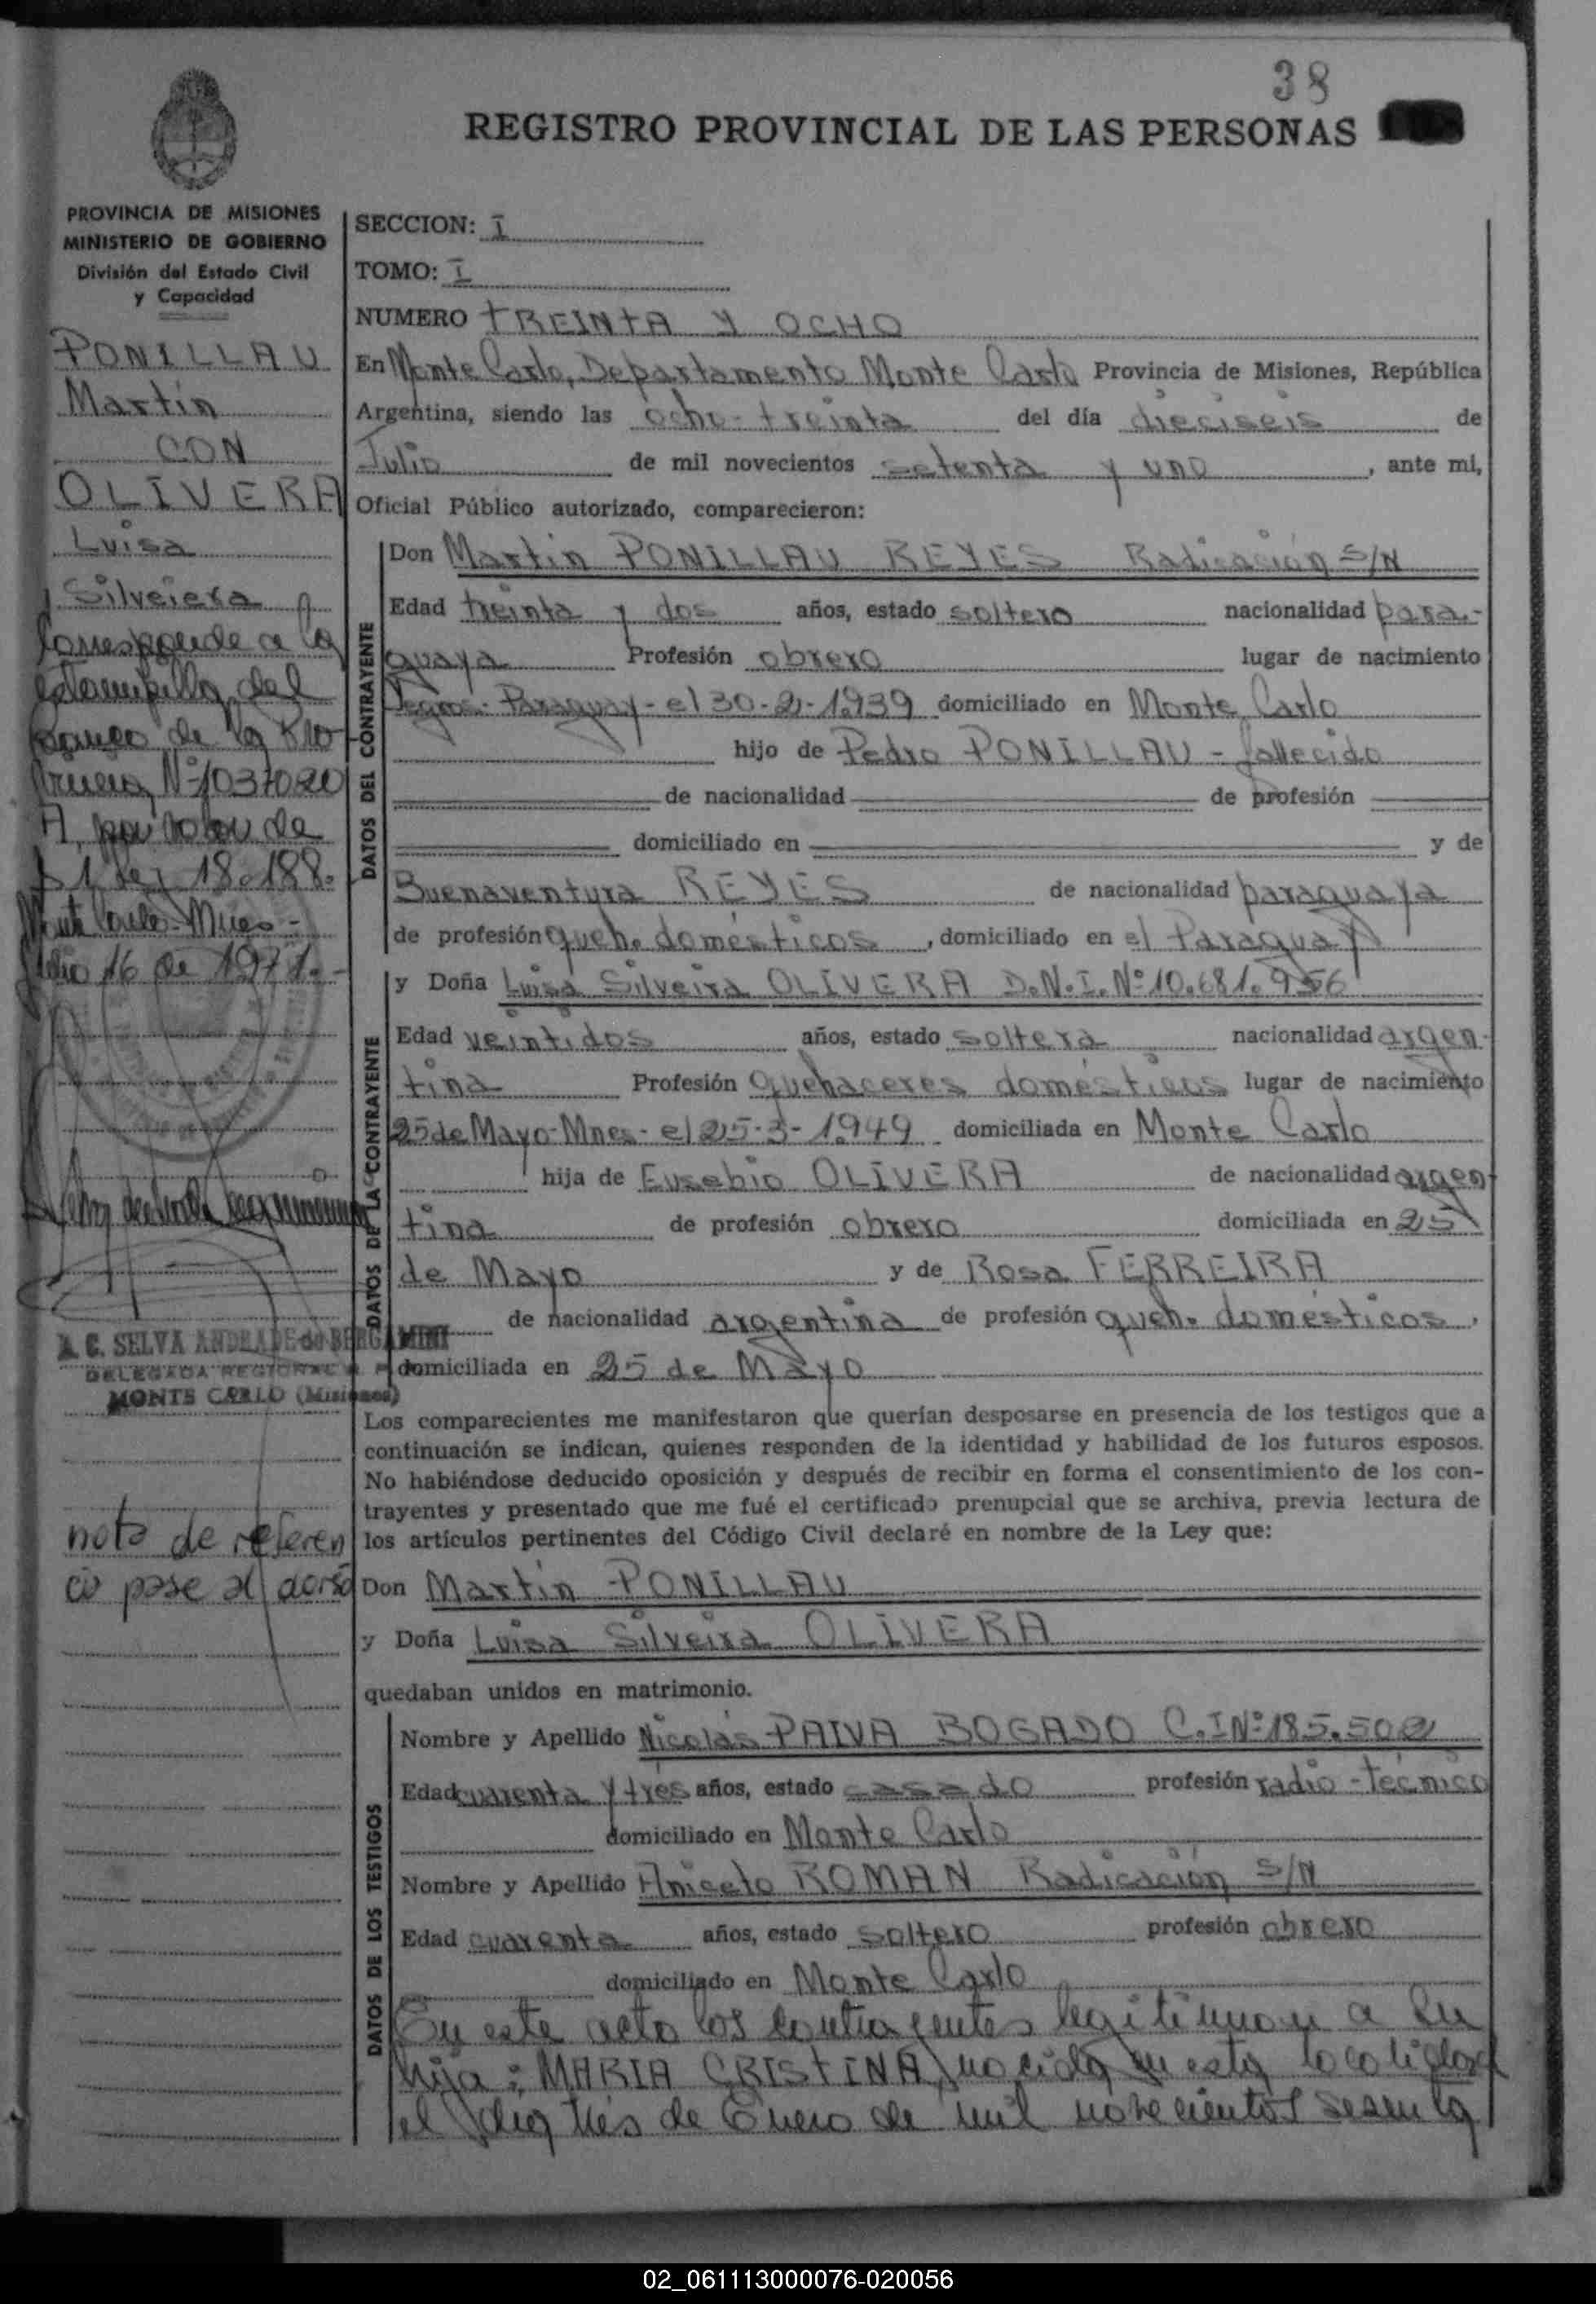 38
REGISTRO PROVINCIAL DE LAS PERSONAS
PROVINCIA DE MISIONES
MINISTERIO DE GOBIERNO
División del Estado Civil
y Capacidad
PONILLAU
Martin
CON
OLIVERA
Luisa
Silveiera
Corresponde a la
estampilla del
Banco de la Pro
vincia Nº 1037020
A, por valor de
$ 1 ley 18.188.
Monte Carlo-Mnes-
Julio 16 de 1971.-
A. C. SELVA ANDRADE de BERGAMINI
DELEGADA REGIONAL
MONTE CARLO (Misiones)
nota de referen
cia pase al dorso
SECCION: I
TOMO: I
NUMERO TREINTA Y OCHO
En Monte Carlo, Departamento Monte Carlo Provincia de Misiones, República
Argentina, siendo las ocho-treinta del día dieciseis de
Julio de mil novecientos setenta y uno, ante mi,
Oficial Público autorizado, comparecieron:
DATOS DEL CONTRAYENTE
Don Martin PONILLAU REYES Radicación S/N
Edad treinta y dos años, estado soltero nacionalidad para-
guaya Profesión obrero lugar de nacimiento
Paraguay- el 30-2-1.939 domiciliado en Monte Carlo
hijo de Pedro PONILLAU - fallecido
de nacionalidad de profesión
domiciliado en y de
Buenaventura REYES de nacionalidad paraguaya
de profesión queh. domésticos, domiciliado en el Paraguay
DATOS DE LA CONTRAYENTE
y Doña Luisa Silveira OLIVERA D.N.I. Nº 10.681.956
Edad veintidos años, estado soltera nacionalidad argen-
tina Profesión Quehaceres domésticos lugar de nacimiento
25 de Mayo-Mnes- el 25-3-1.949 domiciliada en Monte Carlo
hija de Eusebio OLIVERA de nacionalidad argen-
tina de profesión obrero domiciliada en 25
de Mayo y de Rosa FERREIRA
de nacionalidad argentina de profesión queh. domésticos,
domiciliada en 25 de Mayo
Los comparecientes me manifestaron que querían desposarse en presencia de los testigos que a
continuación se indican, quienes responden de la identidad y habilidad de los futuros esposos.
No habiéndose deducido oposición y después de recibir en forma el consentimiento de los con-
trayentes y presentado que me fué el certificado prenupcial que se archiva, previa lectura de
los artículos pertinentes del Código Civil declaré en nombre de la Ley que:
Don Martin PONILLAU
y Doña Luisa Silveira OLIVERA
quedaban unidos en matrimonio.
DATOS DE LOS TESTIGOS
Nombre y Apellido Nicolás PAIVA BOGADO C.I Nº 185.502
Edad cuarenta y tres años, estado casado profesión radio-técnico
domiciliado en Monte Carlo
Nombre y Apellido Aniceto ROMAN Radicación S/N
Edad cuarenta años, estado soltero profesión obrero
domiciliado en Monte Carlo
En este acto los contrayentes legitiman a su
hija: MARIA CRISTINA, nacida en esta localidad
el dia tres de Enero de mil novecientos sesenta
02_061113000076-020056